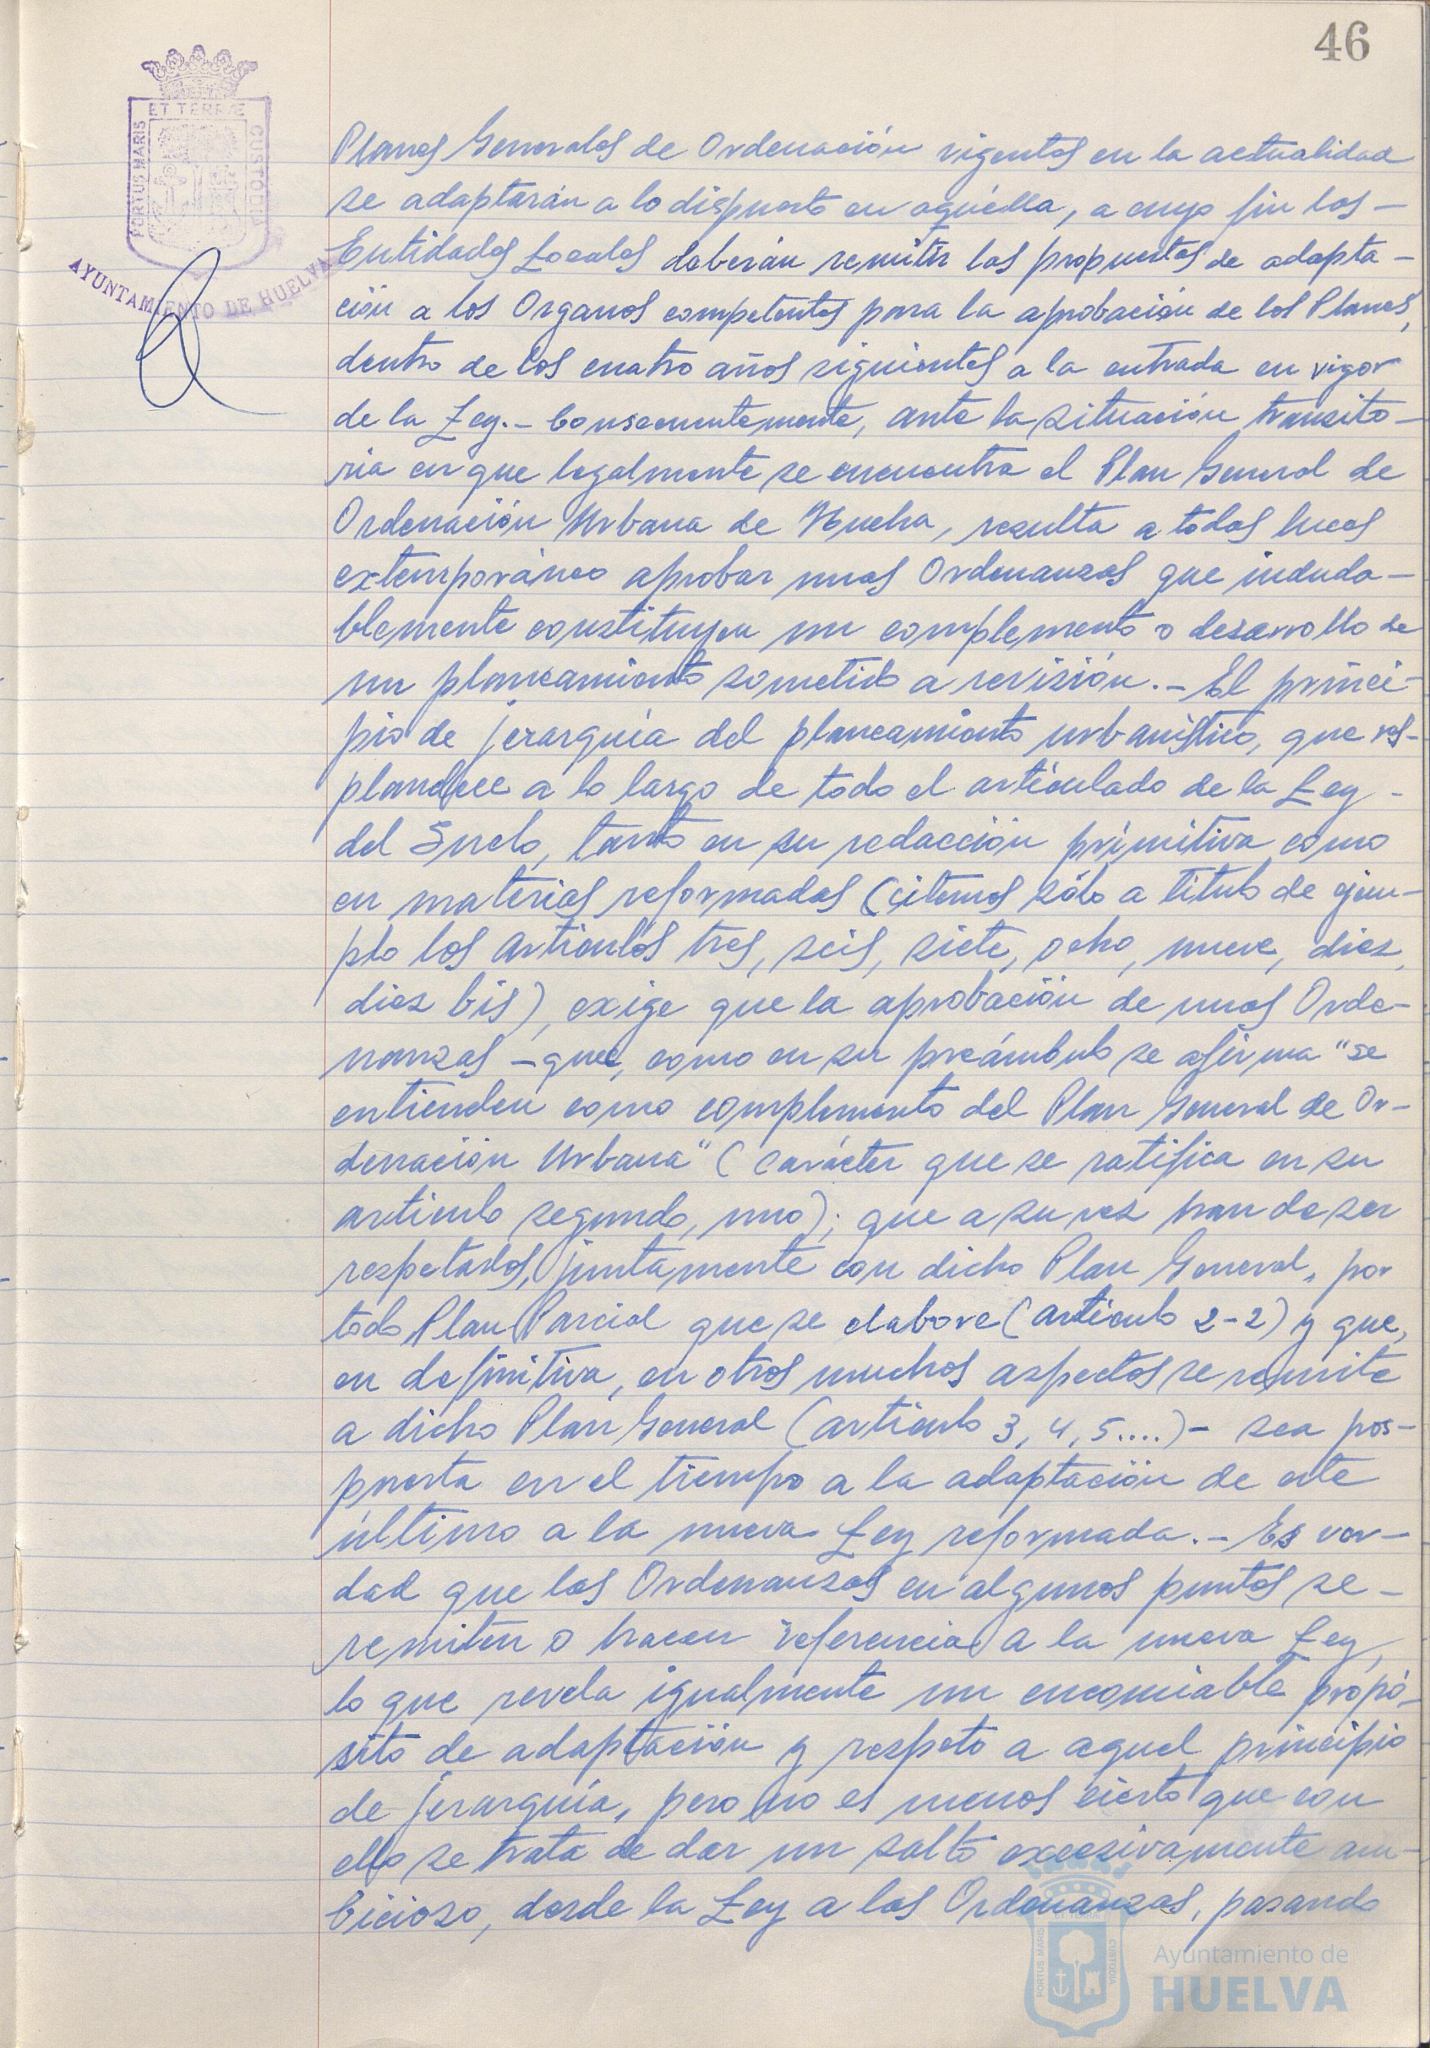 46
ET TERRÆ
PORTUS MARIS
CUSTODIA
AYUNTAMIENTO DE HUELVA
Planes Generales de Ordenación vigentes en la actualidad
se adaptarán a lo dispuesto en aquélla, a cuyo fin las -
Entidades Locales deberán remitir las propuestas de adapta -
ción a los Organos competentes para la aprobación de los Planes,
dentro de los cuatro años siguientes a la entrada en vigor
de la Ley.- Consecuentemente, ante la situación transito -
ria en que legalmente se encuentra el Plan General de
Ordenación Urbana de Huelva, resulta a todas luces
extemporáneo aprobar unas Ordenanzas que induda -
blemente constituyen un complemento o desarrollo de
un planeamiento sometido a revisión.- El princi-
pio de jerarquía del planeamiento urbanístico, que res-
plandece a lo largo de todo el articulado de la Ley -
del Suelo, tanto en su redacción primitiva como
en materias reformadas (citemos sólo a titulo de ejem-
plo los articulos tres, seis, siete, ocho, nueve, diez,
diez bis), exige que la aprobación de unas Orde-
nanzas - que, como en su preámbulo se afirma "se
entienden como complemento del Plan General de Or-
denación Urbana" (carácter que se ratifica en su
articulo segundo, uno); que a su vez han de ser
respetados, juntamente con dicho Plan General, por
todo Plan Parcial que se elabore (articulo 2-2) y que,
en definitiva, en otros muchos aspectos se remite
a dicho Plan General (articulo 3, 4, 5....)- sea pos-
puesta en el tiempo a la adaptación de este
último a la nueva Ley reformada.- Es ver-
dad que las Ordenanzas en algunos puntos se -
remiten o hacen referencia a la nueva Ley,
lo que revela igualmente un encomiable propó-
sito de adaptación y respeto a aquel principio
de jerarquía, pero no es menos cierto que con
ello se trata de dar un salto excesivamente am-
bicioso, desde la Ley a las Ordenanzas, pasando
PORTUS MARIS
CUSTODIA
Ayuntamiento de
HUELVA